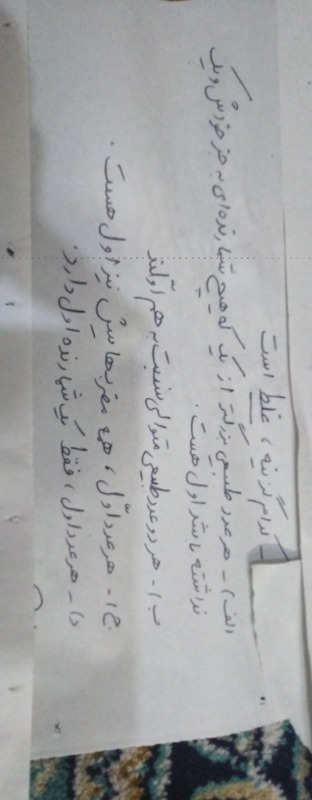 کدام گزینه، غلط است
الف)- هر عدد طبیعی بزرگتر از یک که هیچ شمارنده‌ای به جز خودش و یک
نداشته باشد اول هست.
ب)- هر دو عدد طبیعی متوالی نسبت به هم اولند
ج)- هر عدد اول، همه مضرب‌هایش نیز اول هست.
د)- هر عدد اول، فقط یک شمارنده اول دارد.